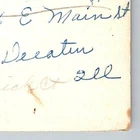 E Main St
Decatur
Ill